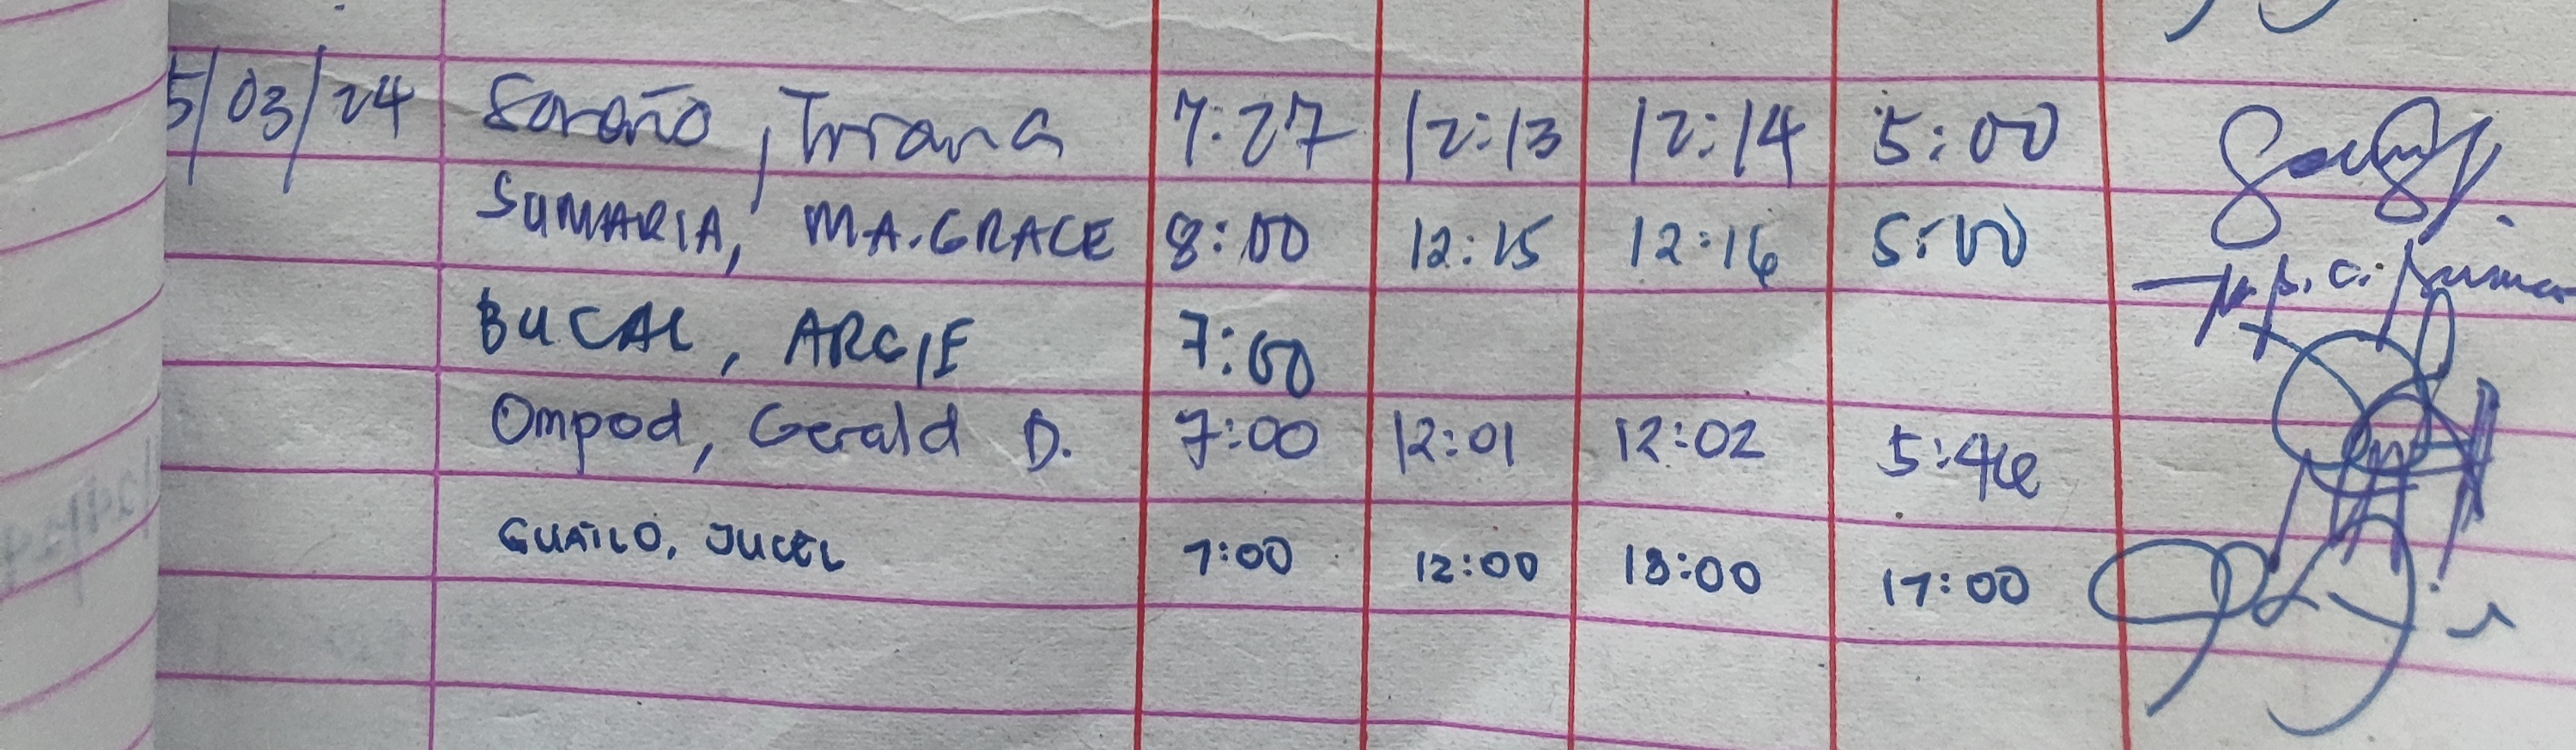 5/03/24 Soroño, Triana 7:27 12:13 12:14 5:00
SUMARIA, MA. GRACE 8:00 12:15 12:16 5:00
BUCAL, ARGIE 7:00
Ompod, Gerald D. 7:00 12:01 12:02 5:46
GUAILO, JUCEL 7:00 12:00 13:00 17:00